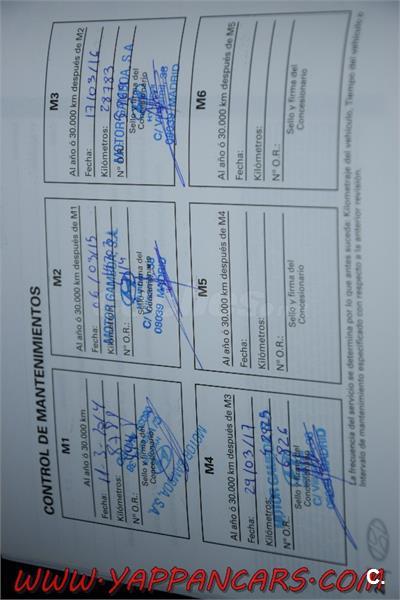 CONTROL DE MANTENIMIENTOS
M1
Al año ó 30.000 km
Fecha:
Kilómetros:
Nº O.R.:
Sello y firma del
Concesionario
M2
Al año ó 30.000 km después de M1
Fecha: 06/03/15
Kilómetros:
Nº O.R.:
Sello y firma del
Concesionario
08039 MADRID
M3
Al año ó 30.000 km después de M2
Fecha: 17/03/16
Kilómetros: 28783
Nº O.R.:
MOTOR GAMBOA S.A
Sello y firma del
Concesionario
08039 MADRID
M4
Al año ó 30.000 km después de M3
Fecha: 29/03/17
Kilómetros:
Nº O.R.:
Sello y firma del
Concesionario
M5
Al año ó 30.000 km después de M4
Fecha:
Kilómetros:
Nº O.R.:
Sello y firma del
Concesionario
M6
Al año ó 30.000 km después de M5
Fecha:
Kilómetros:
Nº O.R.:
Sello y firma del
Concesionario
La frecuencia del servicio se determina por lo que antes suceda: Kilometraje del vehículo, Tiempo del vehículo o
Intervalo de mantenimiento especificado con respecto a la anterior revisión.
WWW.YAPPANCARS.COM
C.